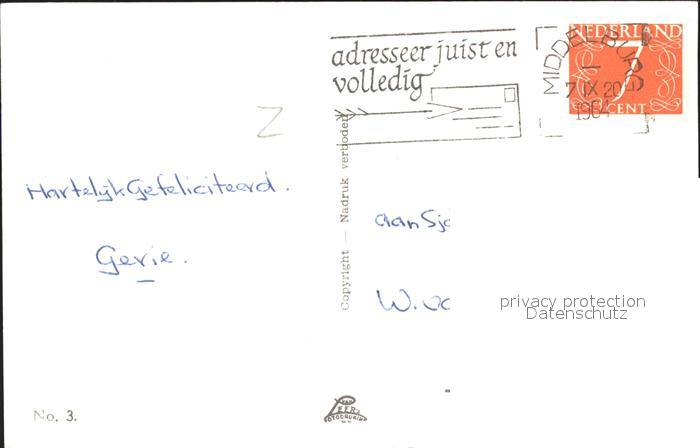 adresseer juist en
volledig
MIDDELBURG
7 IX 20
1964
NEDERLAND
7
CENT
Z
Hartelijk Gefeliciteerd.
Gerie.
Copyright — Nadruk verboden
aan Sjo
W. v
privacy protection
Datenschutz
No. 3.
VAN
LEER'S
FOTODRUKIN